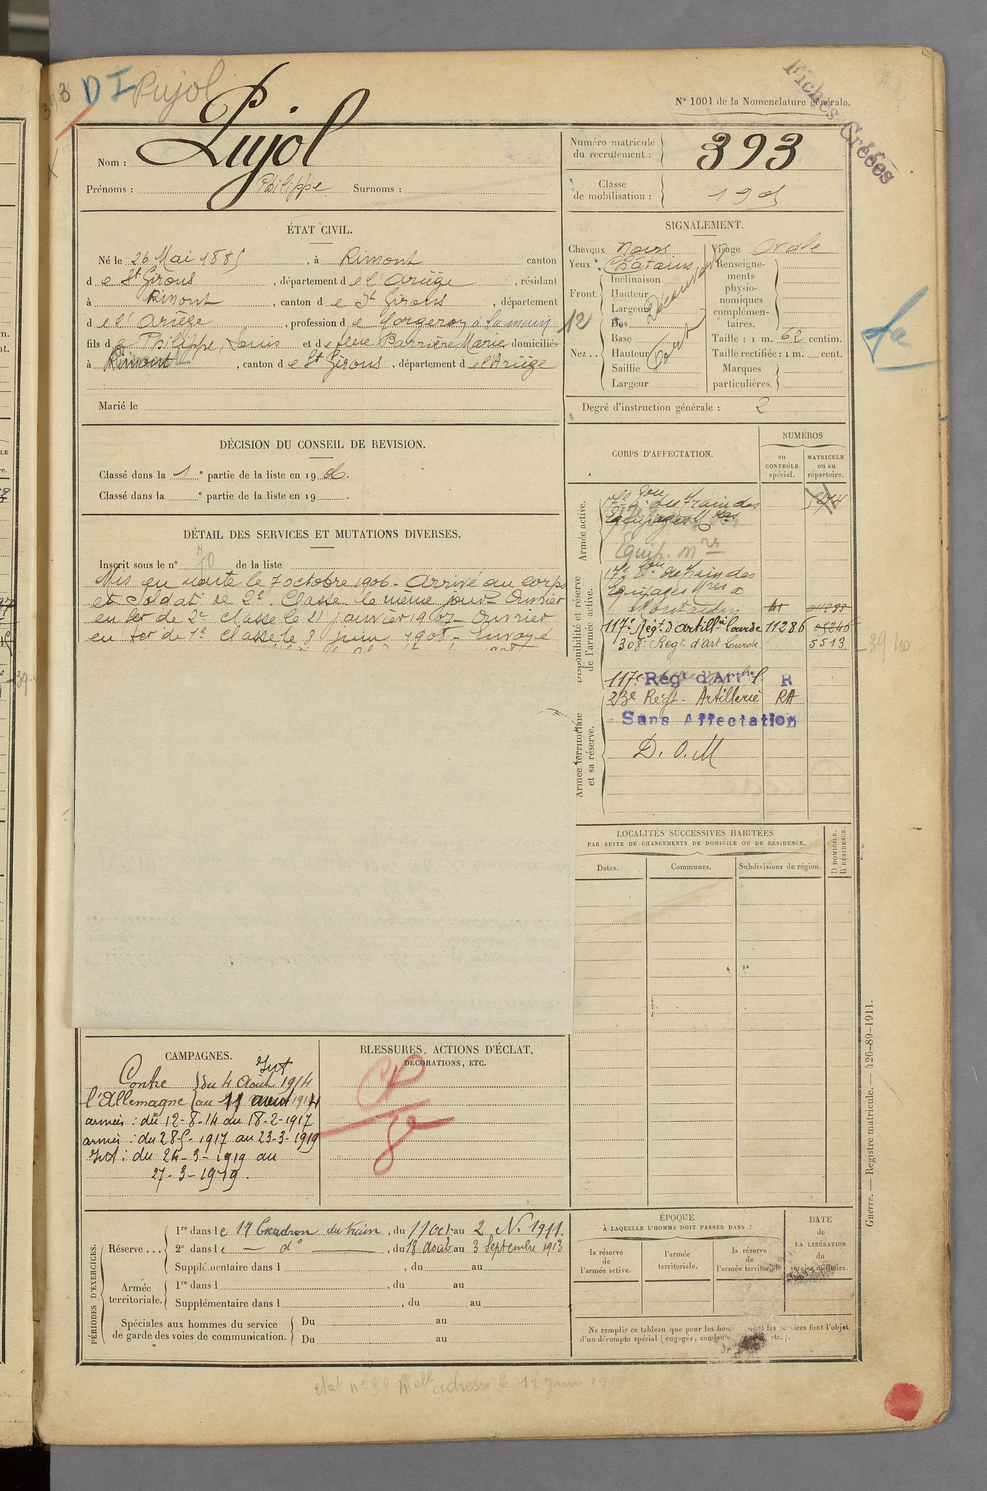 393 DI Pujol
Fiches Créées
N° 1001 de la Nomenclature générale.
Nom : Pujol
Prénoms : Philippe Surnoms :
Numéro matricule du recrutement : 393
Classe de mobilisation : 190
ÉTAT CIVIL.
Né le 26 Mai 1885, à Rimont canton
d e St Girons, département d e l'Ariège, résidant
à Rimont, canton d e St Girons, département
d e l'Ariège, profession d e Forgeron à la main
fils d e Philippe, Louis et d e feue Barrière Marie domiciliés
à Rimont, canton d e St Girons, département d e l'Ariège
Marié le
SIGNALEMENT.
Cheveux noirs
Yeux : châtains
Front. Inclinaison
Hauteur
Largeur
Nez.. Dos
Base
Hauteur
Saillie
Largeur
Visage ovale
Renseignements physionomiques complémentaires.
Taille : 1 m. 62 centim.
Taille rectifiée : 1 m. cent.
Marques particulières.
12
Degré d'instruction générale : 2
DÉCISION DU CONSEIL DE REVISION.
Classé dans la 1e partie de la liste en 1906.
Classé dans la e partie de la liste en 19 .
DÉTAIL DES SERVICES ET MUTATIONS DIVERSES.
Inscrit sous le n° 70 de la liste
Mis en route le 7 octobre 1906 - Arrivé au corps
et soldat de 2e Classe le même jour - Ouvrier
en fer de 2e classe le 21 janvier 1907 - Ouvrier
en fer de 1e classe le 8 juin 1908 - Envoyé
CORPS D'AFFECTATION.
NUMÉROS
au CONTRÔLE spécial.
MATRICULE ou au répertoire.
Armée active.
17e Eon du train des
Equipages
Equip. mres
Disponibilité et réserve de l'armée active.
17e Eon du train des
Equipages Mres à
Montauban
117e Régt d'artillie lourde 11286
308e Régt d'art lourde 5513
39-40
Armée territoriale et sa réserve.
117e Régt d'Artie L. R
23e Régt Artillerie RA
Sans Affectation
D. O. M
LOCALITÉS SUCCESSIVES HABITÉES
PAR SUITE DE CHANGEMENTS DE DOMICILE OU DE RÉSIDENCE.
Dates. Communes. Subdivisions de région. D DOMICILE. R RÉSIDENCE.
CAMPAGNES.
Int
Contre du 4 Août 1914
l'Allemagne au 11 août 1914
armées : du 12-8-14 au 18-2-1917
armées : du 28-5-1917 au 23-3-1919
Int : du 24-3-1919 au
27-3-1919.
BLESSURES, ACTIONS D'ÉCLAT,
DÉCORATIONS, ETC.
PÉRIODES D'EXERCICES.
Réserve . . .
1re dans le 17 Escadron du train, du 11 Oct. au 2 N. 1911.
2e dans le — do —, du 18 août au 3 Septembre 1913
Supplémentaire dans l , du au
Armée territoriale.
1re dans l , du au
Supplémentaire dans l , du au
Spéciales aux hommes du service de garde des voies de communication.
Du au
Du au
ÉPOQUE
À LAQUELLE L'HOMME DOIT PASSER DANS :
la réserve de l'armée active.
l'armée territoriale.
la réserve de l'armée territoriale
DATE de LA LIBÉRATION du service militaire.
Ne remplir ce tableau que pour les les services font l'objet
d'un décompte spécial (engagés, etc.).
Guerre. — Registre matricule. — 426-89-1911.